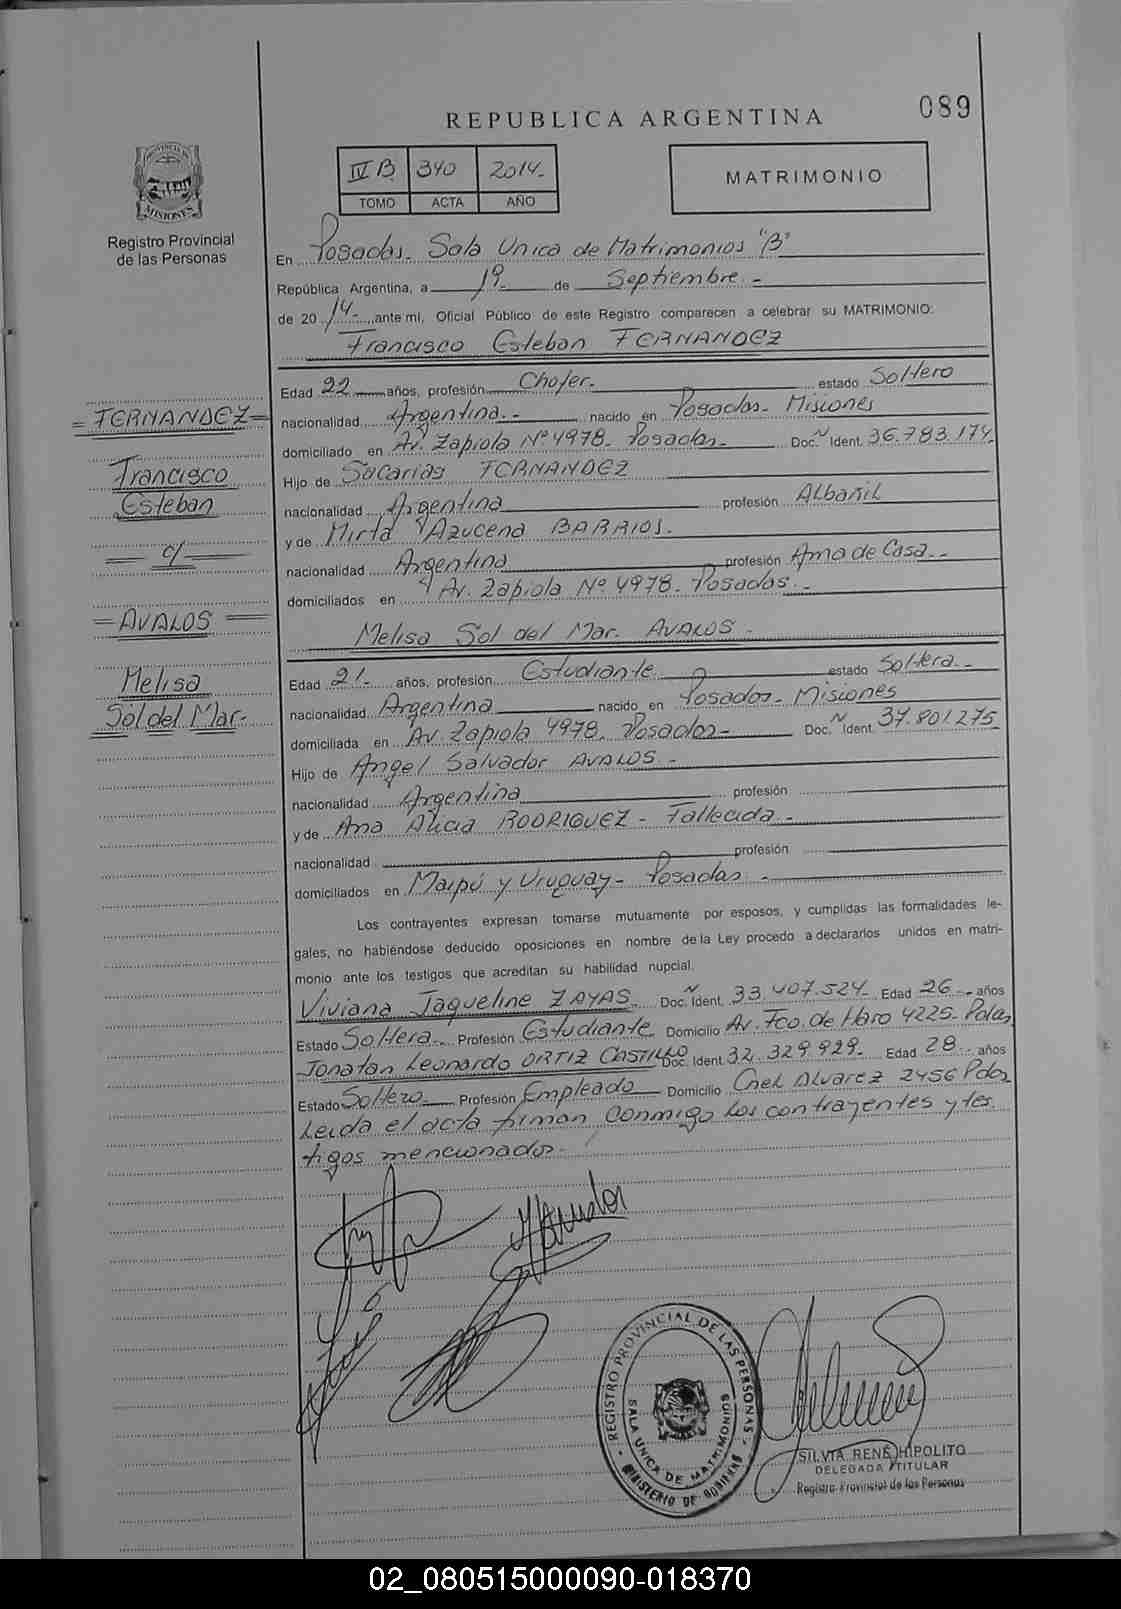 REPUBLICA ARGENTINA
089
IV B. 340 2014.-
TOMO ACTA AÑO
MATRIMONIO
PROVINCIA DE
MISIONES
Registro Provincial
de las Personas
En Posadas. Sala Unica de Matrimonios "B"
República Argentina, a 19 de Septiembre.-
de 20 14.- ,ante mi, Oficial Público de este Registro comparecen a celebrar su MATRIMONIO:
Francisco Esteban FERNANDEZ
Edad 22 años, profesión Chofer. estado Soltero
nacionalidad Argentina.- nacido en Posadas- Misiones
domiciliado en Av. Zapiola Nº 4978. Posadas- Doc. N Ident. 36.783.174.
Hijo de Sacarias FERNANDEZ
nacionalidad Argentina profesión Albañil
y de Mirta Azucena BARRIOS.
nacionalidad Argentina profesión Ama de Casa.-
domiciliados en Av. Zapiola Nº 4978. Posadas.-
Melisa Sol del Mar. AVALOS.-
Edad 21.- años, profesión Estudiante estado Soltera.-
nacionalidad Argentina nacido en Posadas- Misiones
domiciliada en Av. Zapiola 4978. Posadas- Doc. N Ident. 37.801.275
Hijo de Angel Salvador AVALOS.-
nacionalidad Argentina profesión
y de Ana Alicia RODRIGUEZ - Fallecida.-
nacionalidad profesión
domiciliados en Maipú y Uruguay- Posadas.-
Los contrayentes expresan tomarse mutuamente por esposos, y cumplidas las formalidades le-
gales, no habiéndose deducido oposiciones en nombre de la Ley procedo a declararlos unidos en matri-
monio ante los testigos que acreditan su habilidad nupcial.
Viviana Jaqueline ZAYAS. Doc. N Ident. 33.407.524 Edad 26.- años
Estado Soltera.- Profesión Estudiante Domicilio Av. Fco. de Haro 4225- Pdas
Jonatan Leonardo ORTIZ CASTILLO Doc. Ident. 32.329.929. Edad 28.- años
Estado Soltero.- Profesión Empleado Domicilio Cnel Alvarez 2456 Pdas
Leida el acta firman conmigo los contrayentes y tes
tigos mencionados.-
= FERNANDEZ =
Francisco
Esteban
= c/ =
= AVALOS =
Melisa
Sol del Mar.-
REGISTRO PROVINCIAL DE LAS PERSONAS
SALA UNICA DE MATRIMONIOS
MINISTERIO DE GOBIERNO
SILVIA RENE HIPOLITO
DELEGADA TITULAR
Registro Provincial de las Personas
02_080515000090-018370